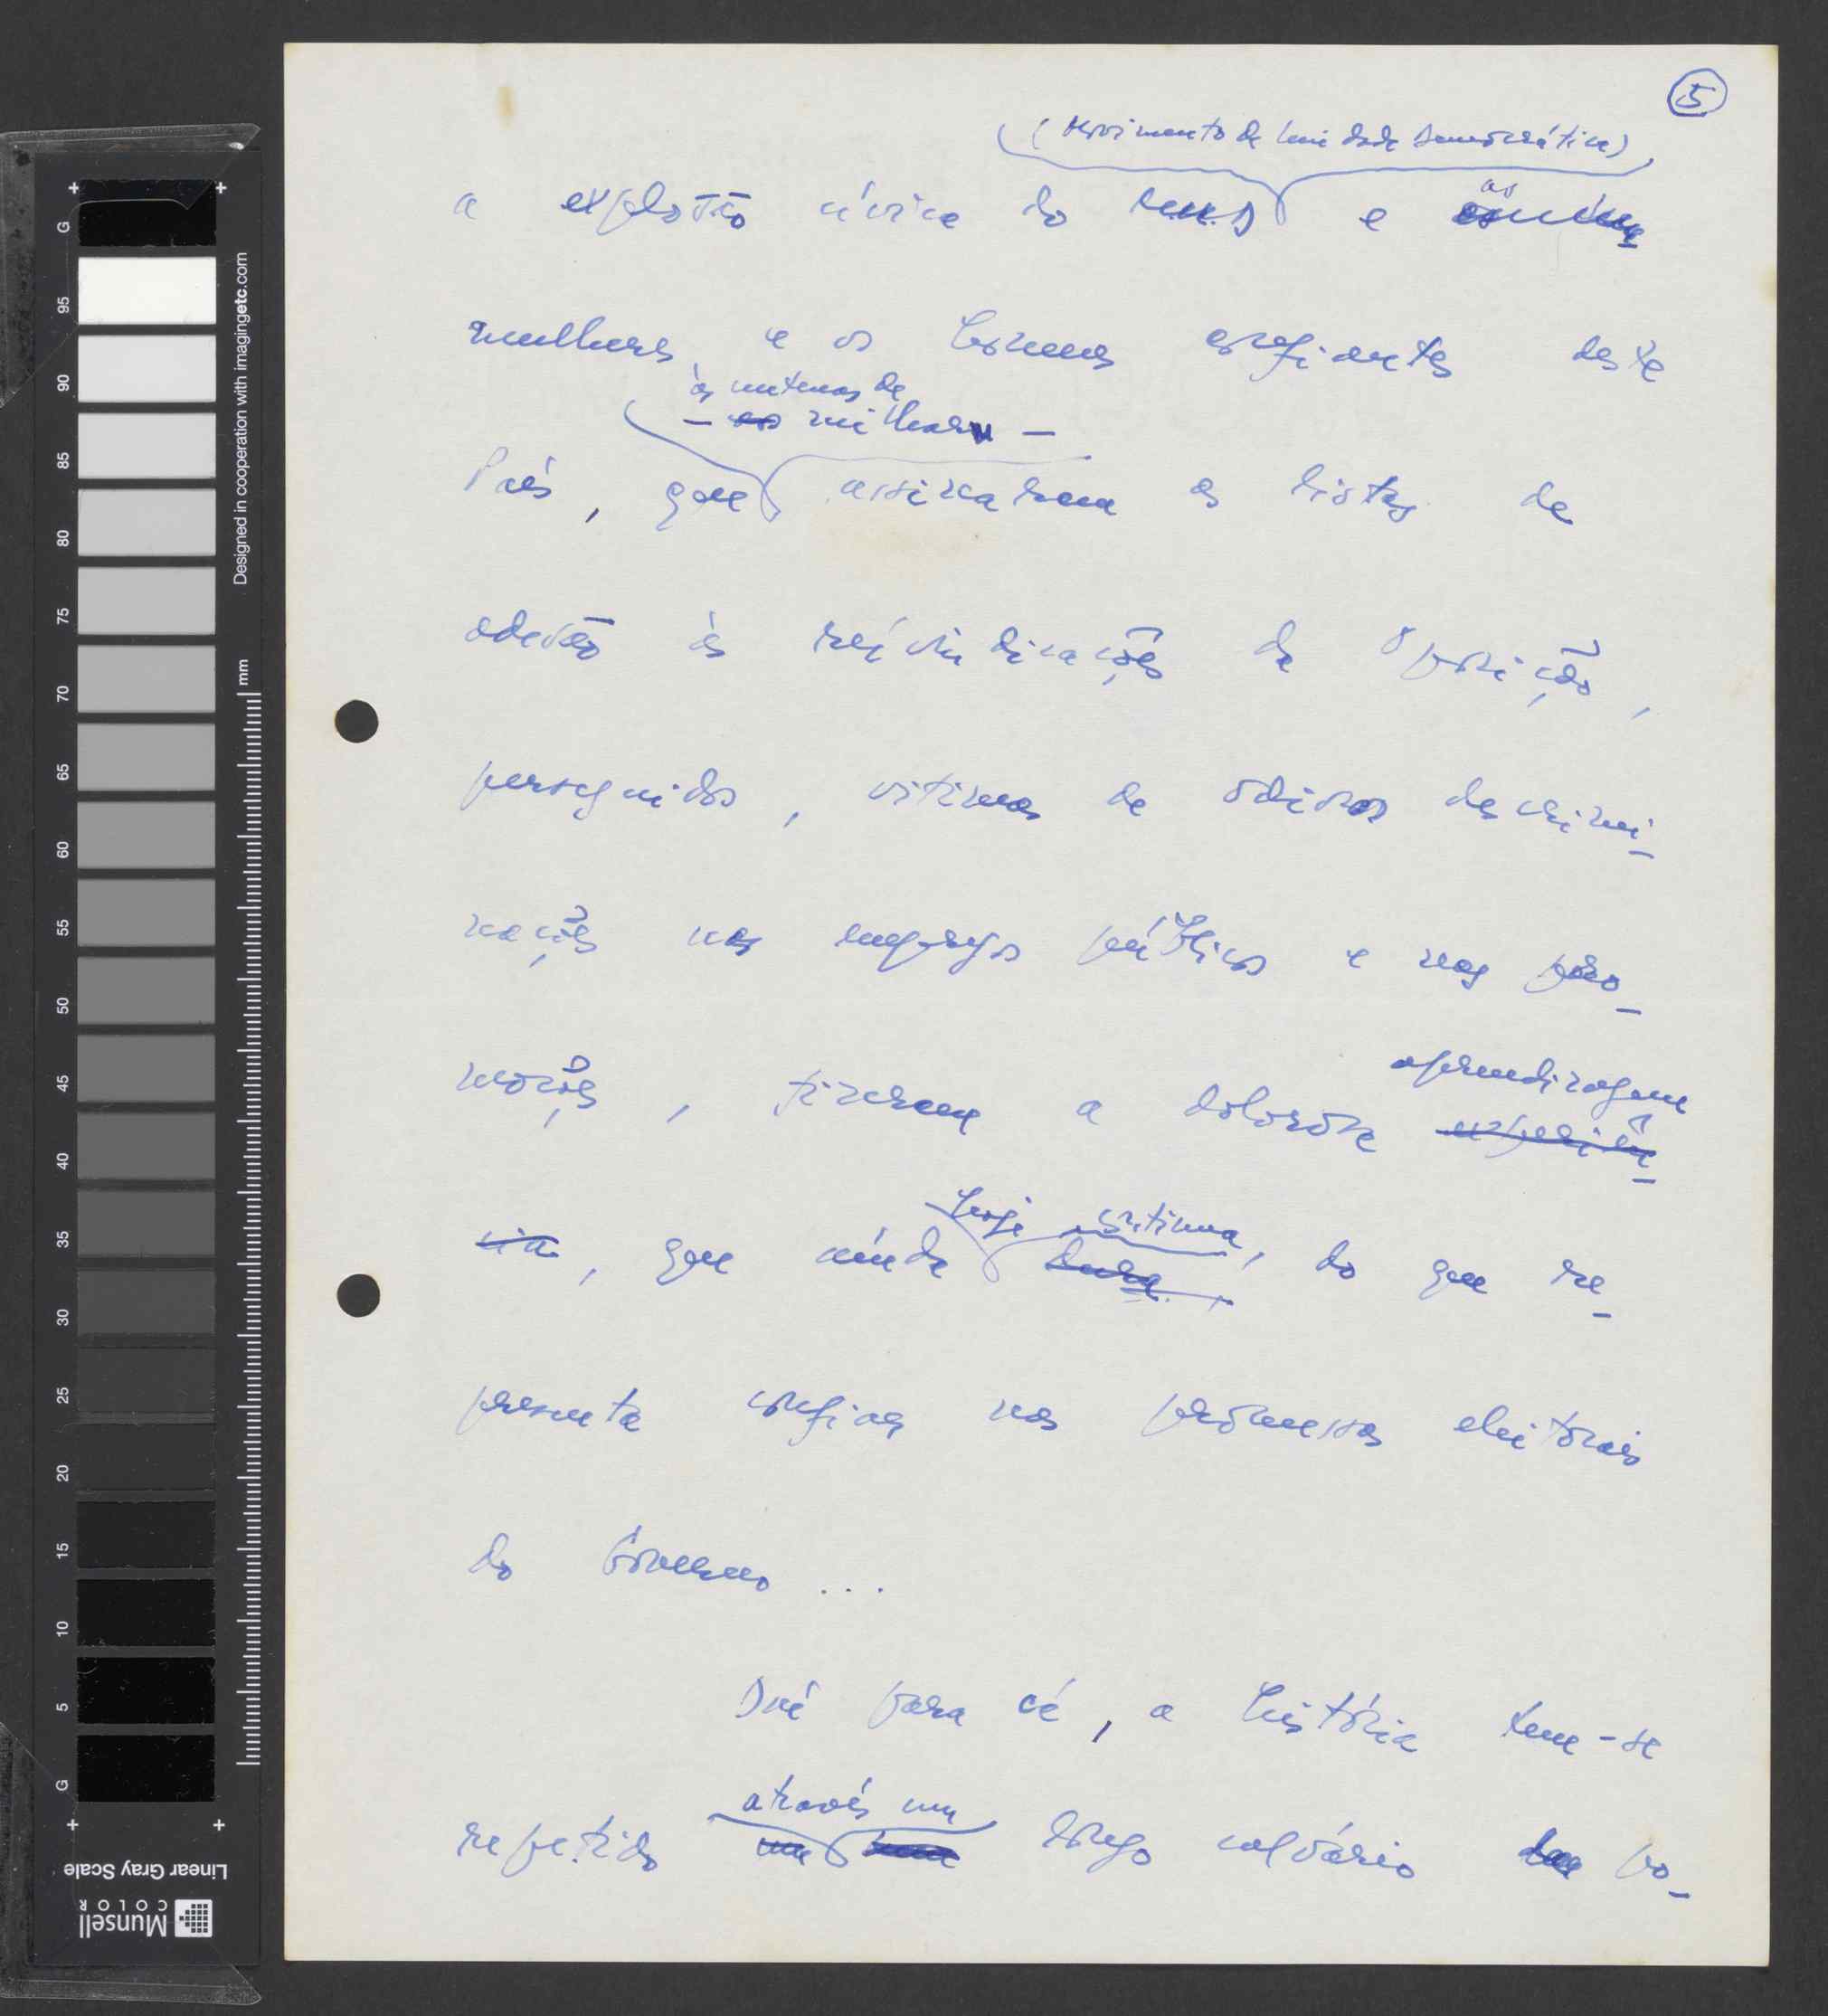 5
(Movimento de Unidade Democrática)
a explosão cívica do M.U.D e as
mulheres, e os homens confiantes deste
às centenas de
— milhares —
País, que assinaram as listas de
adesão às reivindicações da Oposição,
perseguidos, vítimas de odiosas descrimi-
nações nos empregos públicos e nas pro-
moções, fizeram a dolorosa
aprendizagem
experiên-
cia, que ainda
hoje continua,
dura, do que re-
presenta confiar nas promessas eleitorais
do Govêrno ...
Daí para cá, a história tem-se
através um
repetido longo calvário po-
G 95 90 85 80 75 70 65 60 55 50 45 40 35 30 25 20 15 10 5 G
Designed in cooperation with imagingetc.com
mm
Linear Gray Scale
Munsell
COLOR